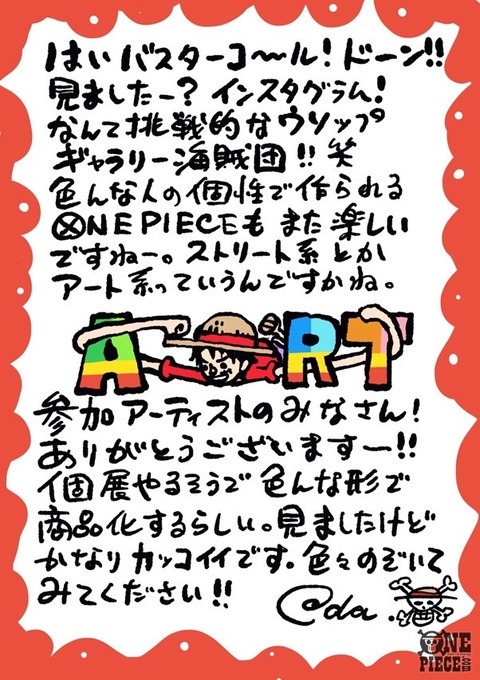 はい バスターコ〜ル！ドーン!!
見ましたー？インスタグラム！
なんて挑戦的なウソップ
ギャラリー海賊団!! 笑
色んな人の個性で作られる
ⓍNE PIECEもまた楽しい
ですねー。ストリート系とか
アート系っていうんですかね。
ART
参加アーティストのみなさん！
ありがとうございますー!!
個展やるそうで色んな形で
商品化するらしい。見ましたけど
かなりカッコイイです。色々のぞいて
みてください!!
@da.
ONE
PIECE.com